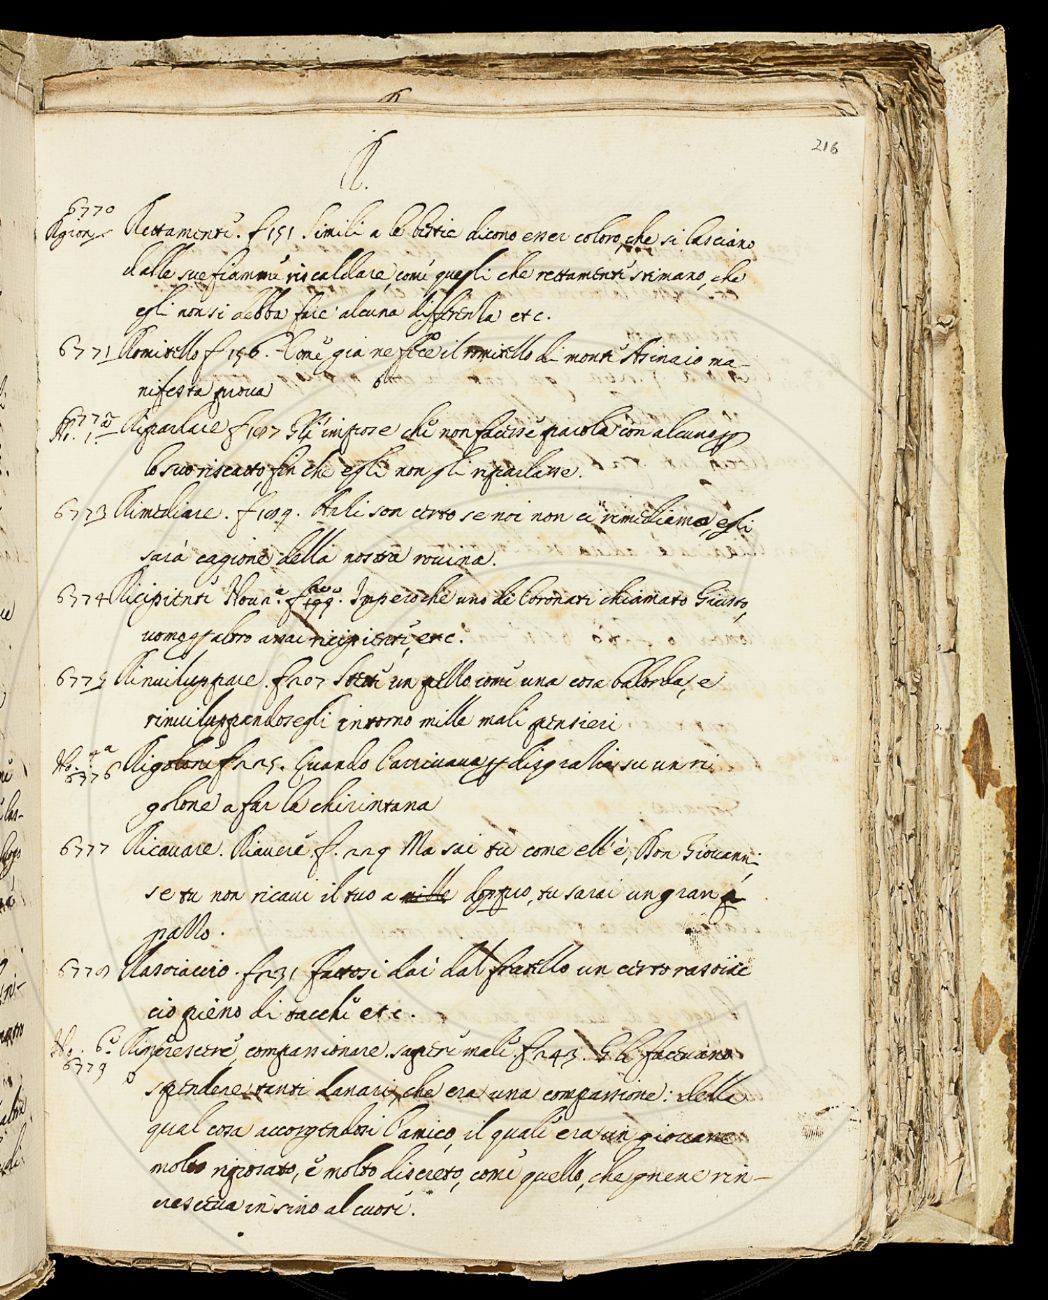 216
R.
6770
Rettamente. f 151. simili a le bestie dicono esser coloro, che si lasciano
dalle sue fiamme riscaldare, come quegli che rettamente stimano, che
egli non si debba fare alcuna differenza etc.
6771 Romitello f 156. Come già ne fece il romitello di monte Asinaio ma-
nifesta pruova
6772 Riparlare f 187 Gli impose che non facesse parola con alcuno
lo suo riscatto, fin che egli non gli riparlasse.
6773 Rimediare. f 189. Anzi son certo se noi non ci rimediamo, egli
sarà cagione della nostra rovina.
6774 Ricipiente f 199. Imperoche uno de Coronati chiamato Giusto,
uomo per altro assai ricipiente, etc.
6775 Rinviluppare. f 207 Stette un pezzo come una cosa balorda, e
rinviluppandosegli intorno mille mali pensieri
6776 Rigolone f 225. Quando l'arrivava per disgrazia su un ri
golone a far la chirintana
6777 Ricavare. Riavere. f. 229 Ma sai tu come ell'è, Don Giovanni,
se tu non ricavi il tuo a doppio, tu sarai un gran
pazzo.
6778 Rasoiaccio. f 231 fattosi dai dal fratello un certo rasoiac
cio pieno di tacche etc.
6779 Rincrescere, compassionare. saper male. f 243. E le facevano
spendere tanti danari, che era una compassione: della
qual cosa accorgendosi l'amico, il quale era un giovane
molto riposato, e molto discreto, come quello, che gnene rin-
cresceva insino al cuore.